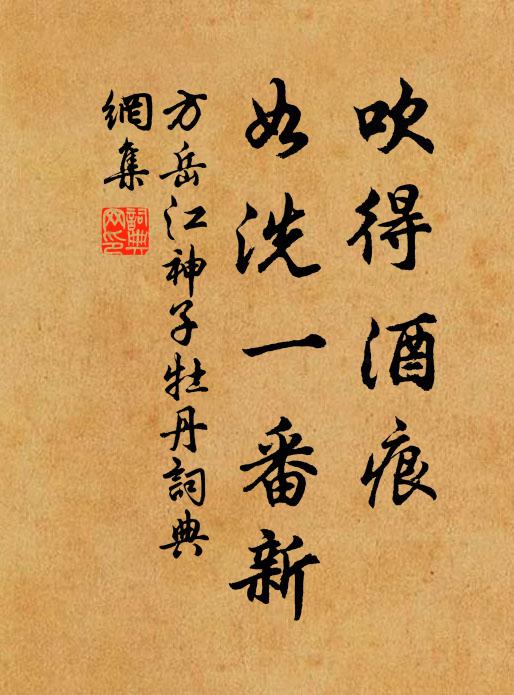 吹得酒痕
如洗一番新
方岳江神子牡丹詞典
網集
詞典
網印